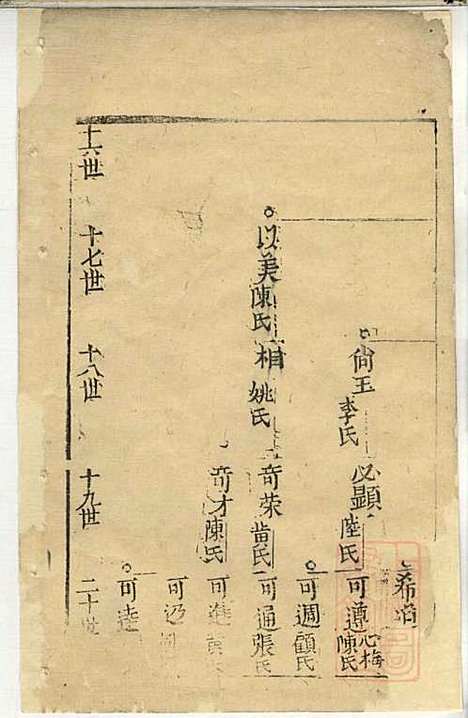 希
尙玉 李氏 必顯 陸氏 可遵 心梅 陳氏
可週 顧氏
以美 陳氏 相 姚氏 奇荣 黄氏 可通 張氏
奇才 陳氏 可進
可
可逵
十六世 十七世 十八世 十九世 二十世